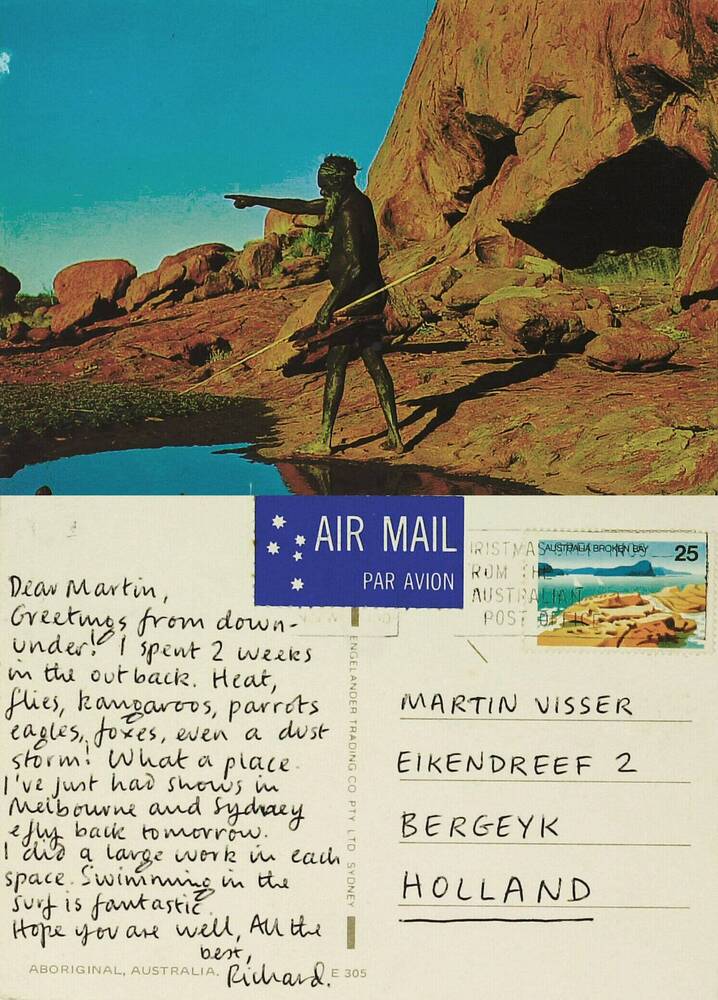 AIR MAIL
PAR AVION
AUSTRALIA BROKEN BAY 25
FROM THE
AUSTRALIAN
POST OFFICE
Dear Martin,
Greetings from down-
under! I spent 2 weeks
in the outback. Heat,
flies, kangaroos, parrots
eagles, foxes, even a dust
storm! What a place.
I've just had shows in
Melbourne and Sydney
& fly back tomorrow.
I did a large work in each
space. Swimming in the
surf is fantastic.
Hope you are well, All the
best,
Richard.
ENGELANDER TRADING CO. PTY. LTD. SYDNEY
MARTIN VISSER
EIKENDREEF 2
BERGEYK
HOLLAND
ABORIGINAL, AUSTRALIA.
E 305